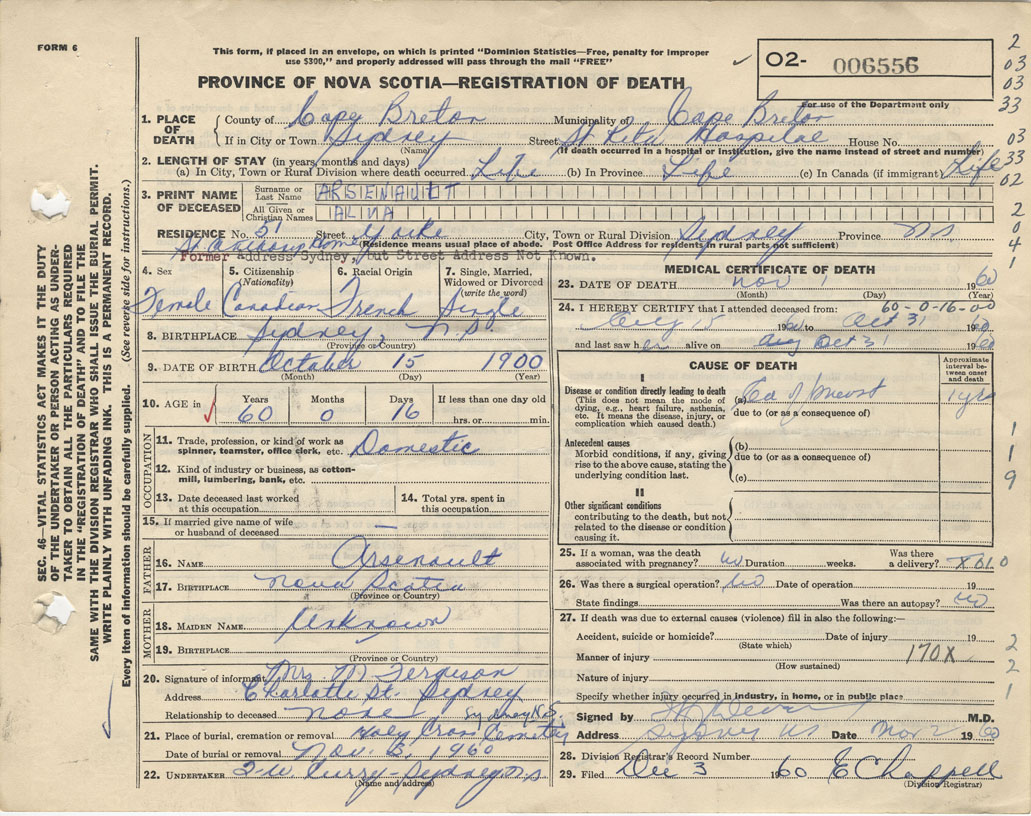 FORM 6
This form, if placed in an envelope, on which is printed "Dominion Statistics—Free, penalty for improper
use $300," and properly addressed will pass through the mail "FREE"
PROVINCE OF NOVA SCOTIA—REGISTRATION OF DEATH
02- 006556
For use of the Department only
2
03
03
33
03
33
02
2
0
4
1
1
1
9
2
2
1
SEC. 46—VITAL STATISTICS ACT MAKES IT THE DUTY
OF THE UNDERTAKER OR PERSON ACTING AS UNDER-
TAKER TO OBTAIN ALL THE PARTICULARS REQUIRED
IN THE "REGISTRATION OF DEATH" AND TO FILE THE
SAME WITH THE DIVISION REGISTRAR WHO SHALL ISSUE THE BURIAL PERMIT.
WRITE PLAINLY WITH UNFADING INK. THIS IS A PERMANENT RECORD.
Every item of information should be carefully supplied. (See reverse side for instructions.)
1. PLACE OF DEATH
County of Cape Breton Municipality of Cape Breton
If in City or Town Sydney Street St Rita Hospital House No.
(Name) (If death occurred in a hospital or institution, give the name instead of street and number)
2. LENGTH OF STAY (in years, months and days)
(a) In City, Town or Rural Division where death occurred Life (b) In Province Life (c) In Canada (if immigrant) Life
3. PRINT NAME OF DECEASED
Surname or Last Name ARSENAULT
All Given or Christian Names ALMA
RESIDENCE No. 51 Street Yorke City, Town or Rural Division Sydney Province N.S.
St Anthony Home (Residence means usual place of abode. Post Office Address for residents in rural parts not sufficient)
Former Address Sydney, but Street Address Not Known.
4. Sex Female
5. Citizenship (Nationality) Canadian
6. Racial Origin French
7. Single, Married, Widowed or Divorced (write the word) Single
8. BIRTHPLACE Sydney, N.S.
(Province or Country)
9. DATE OF BIRTH October 15 1900
(Month) (Day) (Year)
10. AGE in Years 60 Months 0 Days 16 If less than one day old hrs. or min.
OCCUPATION
11. Trade, profession, or kind of work as spinner, teamster, office clerk, etc. Domestic
12. Kind of industry or business, as cotton-mill, lumbering, bank, etc.
13. Date deceased last worked at this occupation
14. Total yrs. spent in this occupation
15. If married give name of wife or husband of deceased —
FATHER
16. NAME Arsenault
17. BIRTHPLACE Nova Scotia
(Province or Country)
MOTHER
18. MAIDEN NAME Unknown
19. BIRTHPLACE
(Province or Country)
20. Signature of informant Mrs. M Ferguson
Address Charlotte St. Sydney
Relationship to deceased None
21. Place of burial, cremation or removal Holy Cross Cemetery Sydney N.S.
Date of burial or removal Nov. 3, 1960
22. UNDERTAKER Curry Sydney N.S
(Name and address)
MEDICAL CERTIFICATE OF DEATH
23. DATE OF DEATH Nov 1 1960
(Month) (Day) (Year)
60-0-16-00
24. I HEREBY CERTIFY that I attended deceased from:
Aug 15 1960 to Oct 31 1960
and last saw her alive on Oct 31 1960
CAUSE OF DEATH
Approximate interval between onset and death
I
Disease or condition directly leading to death
(This does not mean the mode of dying, e.g., heart failure, asthenia, etc. It means the disease, injury, or complication which caused death.)
(a) Ca of breast 1 yr
due to (or as a consequence of)
Antecedent causes
Morbid conditions, if any, giving rise to the above cause, stating the underlying condition last.
(b)
due to (or as a consequence of)
(c)
II
Other significant conditions
contributing to the death, but not related to the disease or condition causing it.
25. If a woman, was the death associated with pregnancy? No Duration weeks. Was there a delivery?
26. Was there a surgical operation? No Date of operation 19
State findings Was there an autopsy? No
27. If death was due to external causes (violence) fill in also the following:—
Accident, suicide or homicide? Date of injury 19
(State which)
Manner of injury 170X
(How sustained)
Nature of injury
Specify whether injury occurred in industry, in home, or in public place
Signed by M.D.
Address Sydney NS Date Nov 2 1960
28. Division Registrar's Record Number
29. Filed Dec 3 1960 E Chappell
(Division Registrar)